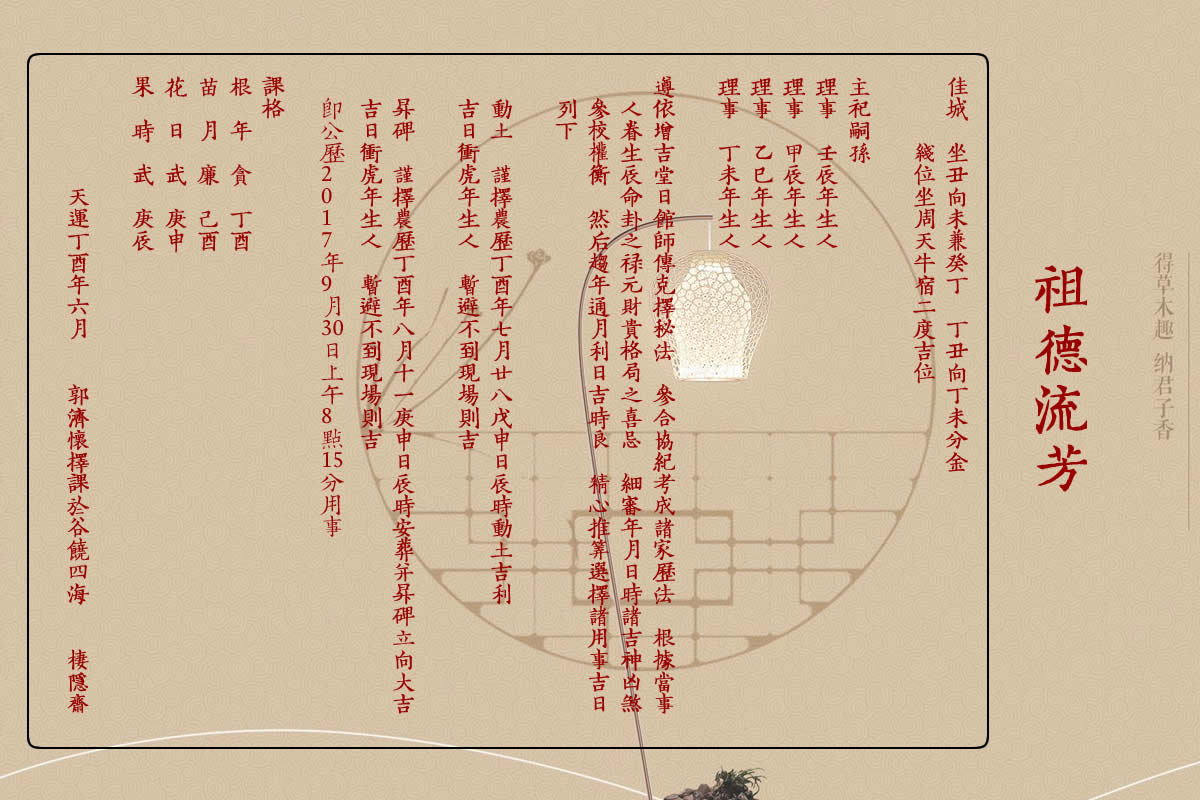 得草木趣 纳君子香
祖德流芳
佳城 坐丑向未兼癸丁 丁丑向丁未分金
綫位坐周天牛宿二度吉位
主祀嗣孫
理事 壬辰年生人
理事 甲辰年生人
理事 乙巳年生人
理事 丁未年生人
遵依增吉堂日館師傳克擇秘法 參合協紀考成諸家歷法 根據當事
人眷生辰命卦之禄元財貴格局之喜忌 細審年月日時諸吉神凶煞
參校權衡 然后趨年通月利日吉時良 精心推筭選擇諸用事吉日
列下
動土 謹擇農歷丁酉年七月廿八戊申日辰時動土吉利
吉日衝虎年生人 暫避不到現場則吉
昇碑 謹擇農歷丁酉年八月十一庚申日辰時安葬并昇碑立向大吉
吉日衝虎年生人 暫避不到現場則吉
即公歷2017年9月30日上午8點15分用事
課格
根 年 貪 丁酉
苗 月 廉 己酉
花 日 武 庚申
果 時 武 庚辰
天運丁酉年六月 郭濟懷擇課於谷饒四海 棲隱齋